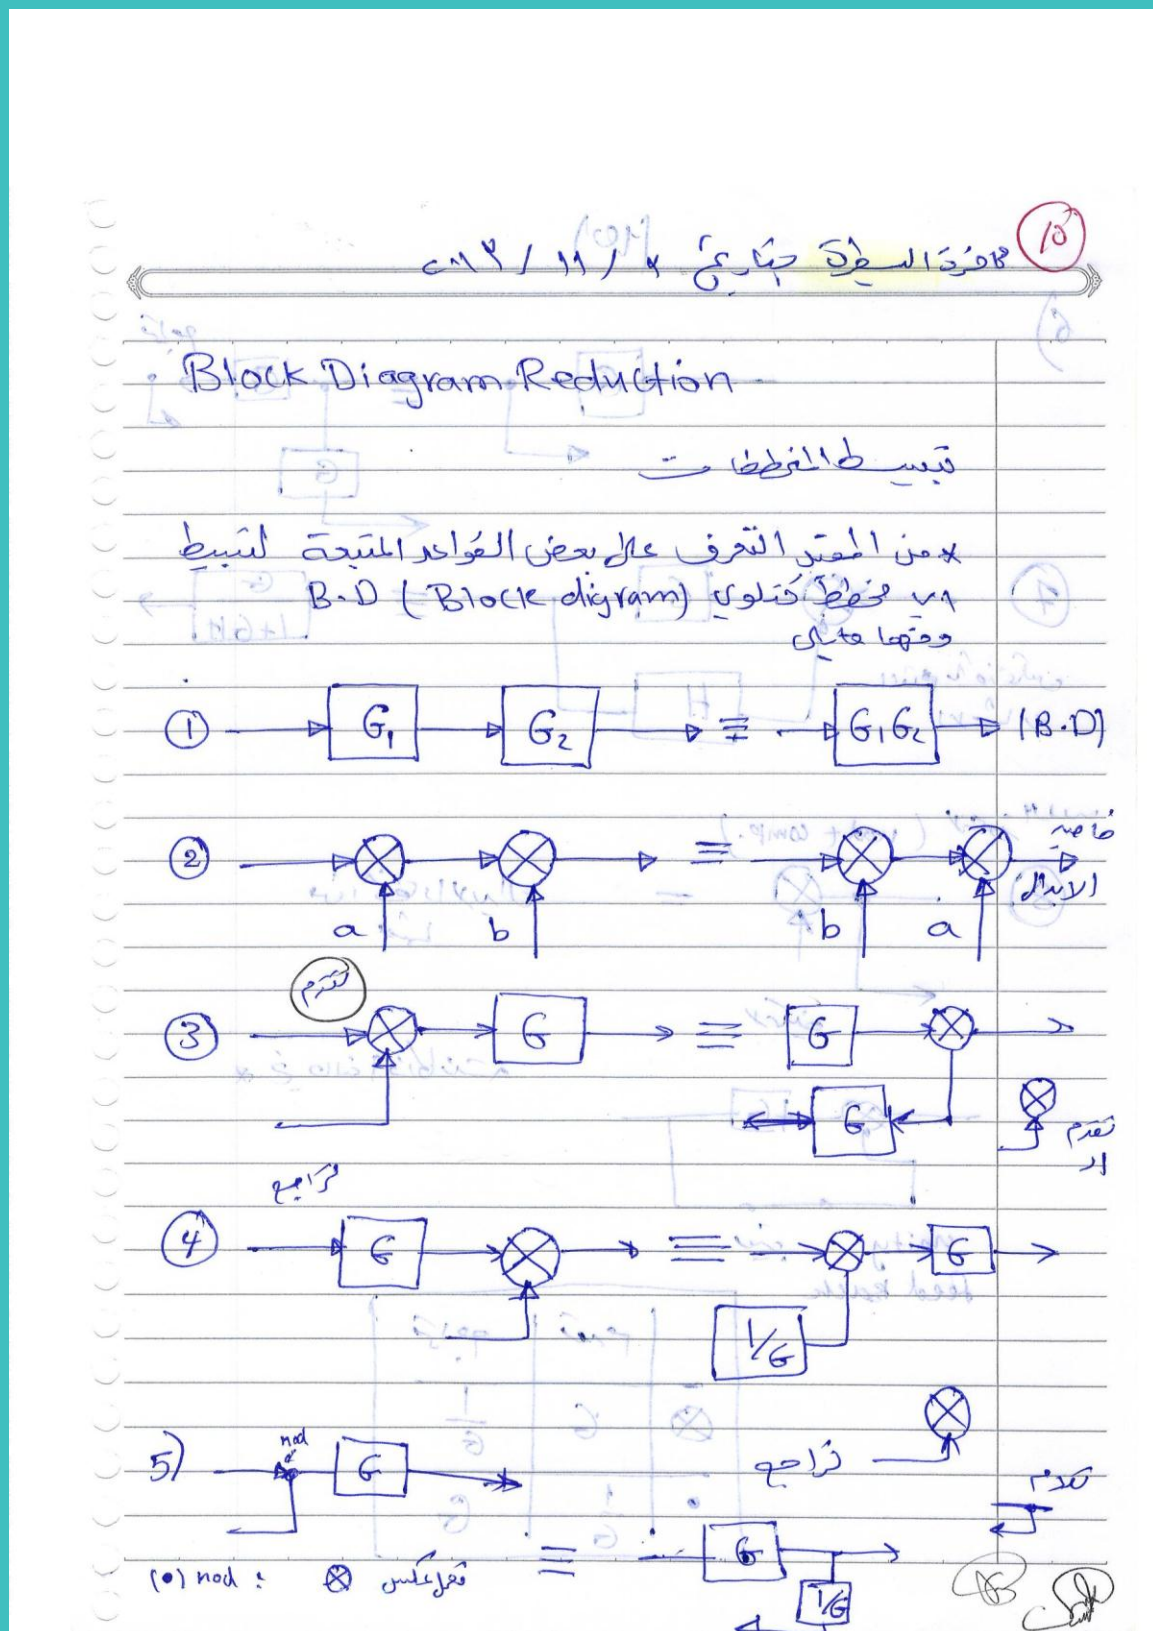 15
محاضرة السيطرة بتاريخ
Block Diagram Reduction
تبسيط المخططات
* من المفيد التعرف على بعض القواعد المتبعة لتبسيط
اي مخطط كتلوي B.D (Block digram)
ومنها مايلي
① G₁ G₂ ≡ G₁G₂ (B.D)
② a b ≡ b a خاصية الابدال
تقدم
③ G ≡ G
G تقدم
تراجع
④ G ≡ G
1/G
5) nod G تراجع
تقدم
≡ G
(•) nod : ⊗ عكس
1/G